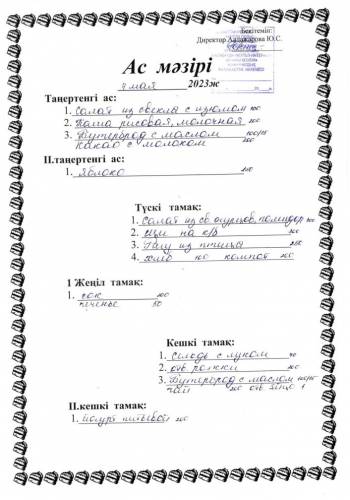 Бекітемін:
Директор Ю.С.
Ас мәзірі
4 мая 2023ж
Таңертенгі ас:
1. Салат из свеклы с изюмом 100
2. Каша рисовая, молочная 200
3. Бутерброд с маслом
какао с молоком 200
II.таңертенгі ас:
1. яблоко
Түскі тамақ:
1. Салат из св. огурцов, помидор 100
2. щи на к/б
3. Рагу из птицы
4. хлеб компот
I Жеңіл тамақ:
1. сок 200
печенье 50
Кешкі тамақ:
1. Сельдь с луком
2. отв. рожки
3. Бутерброд с маслом
чай отв. яйцо 1
II.кешкі тамақ:
1. йогурт питьевой 200